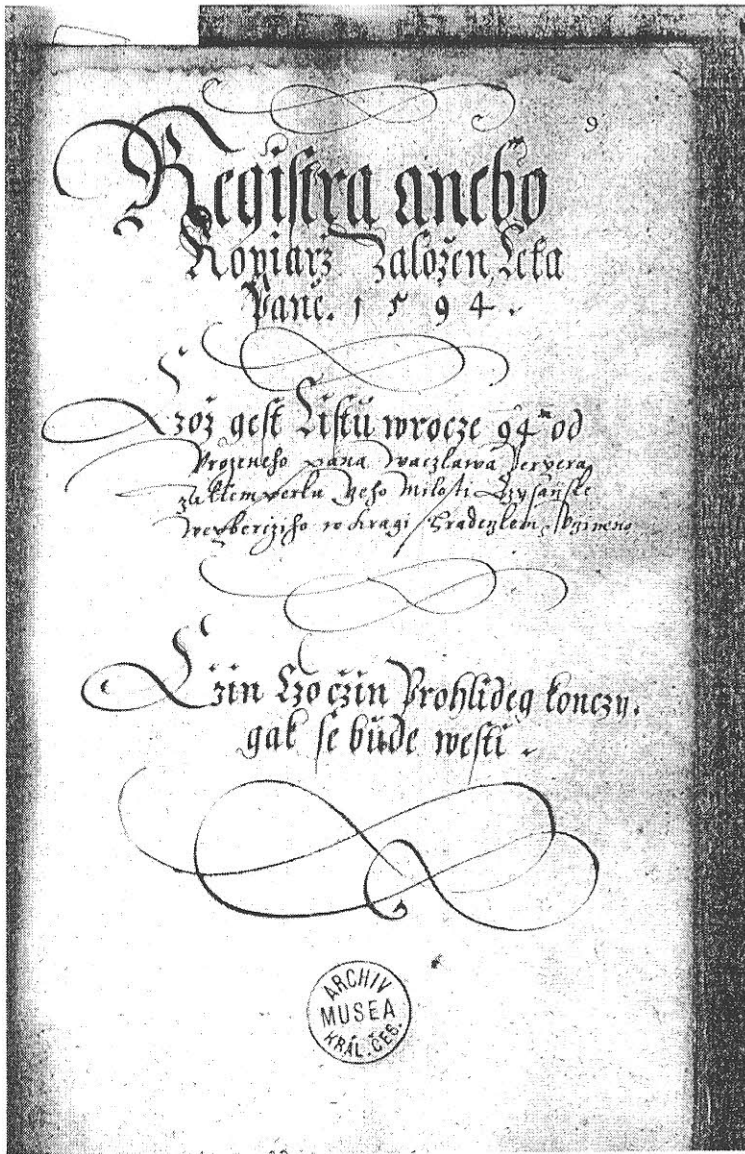 9
Registra anebo
Kopiarz Založen Leta
Pane. 1594.
Czož gest Listů wrocze 94 od
Vrozeneho pana Waczlawa
Geho Milosti Czysařske
w Kragi Hradczkem
Czin Czo czin Prohlideg konczy.
gak se bůde westi.
ARCHIV
MUSEA
KRÁL. ČES.